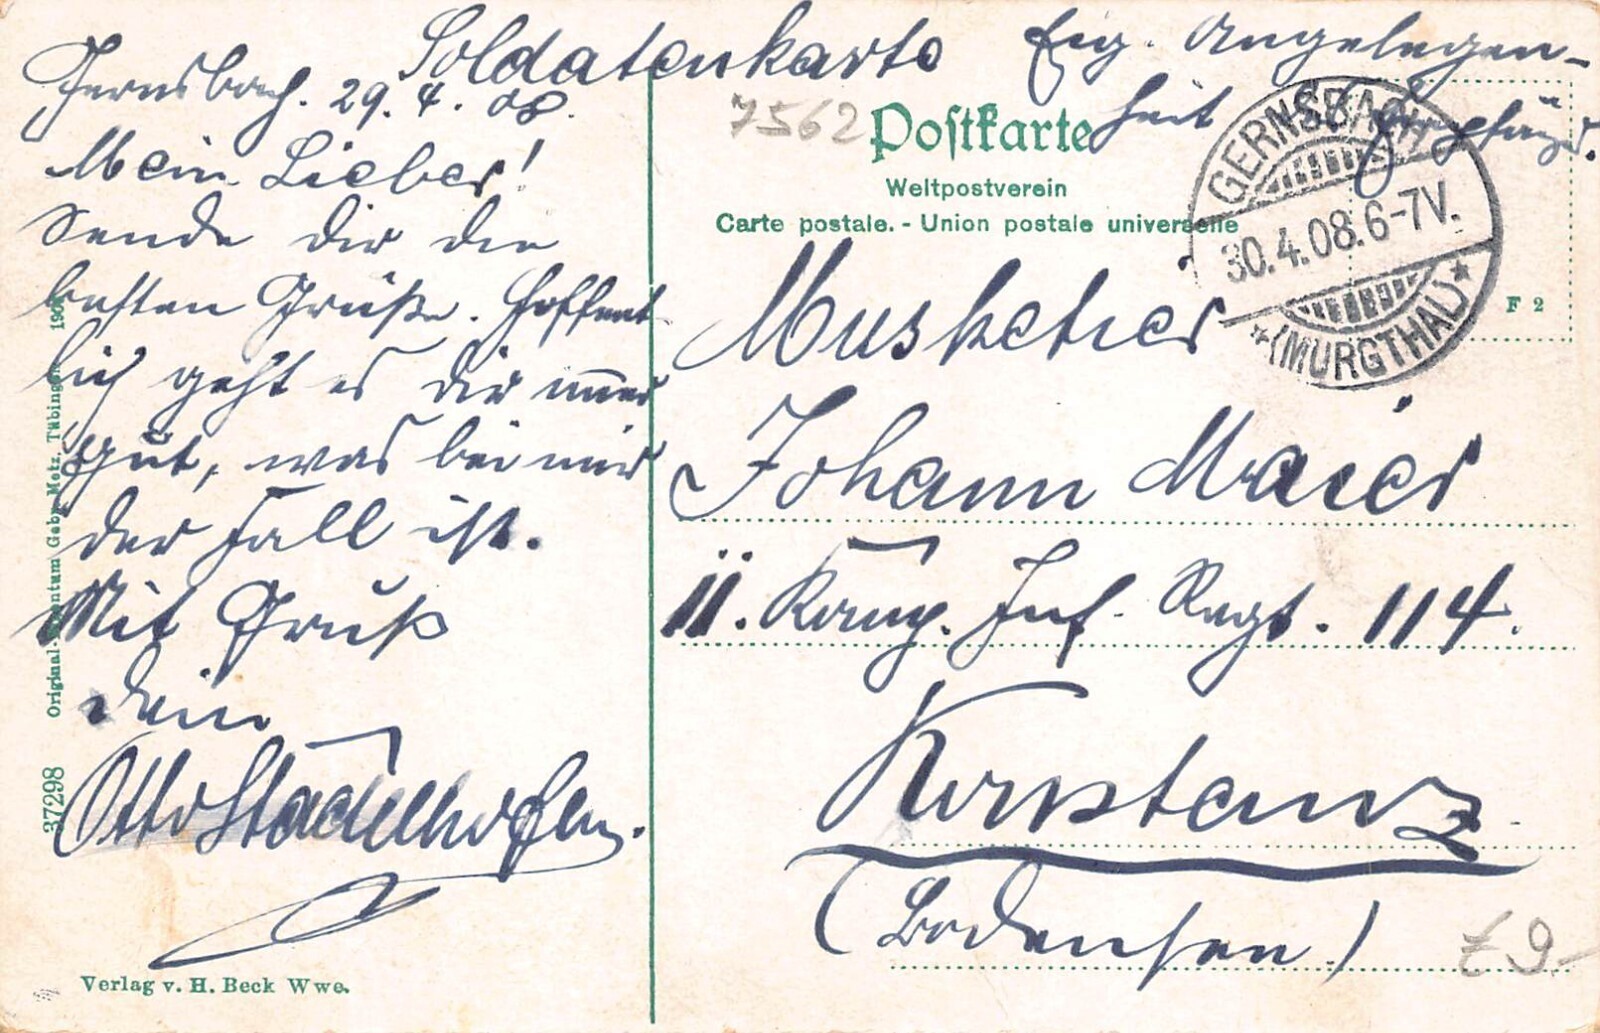 Soldatenkarte Eig. Angelegen-
heit des Empfängers.
Gernsbach. 29. 4. 08.
Mein Lieber!
Sende dir die
besten Grüße. Hoffent
lich geht es dir immer
gut, was bei mir
der Fall ist.
Mit Gruß
dein
Otto Stadelhofer.
7562
Postkarte
Weltpostverein
Carte postale. - Union postale universelle
GERNSBACH
30.4.08.6-7V.
*(MURGTHAL)*
F 2
Musketier
Johann Maier
11. Komp. Inf. Regt. 114.
Konstanz
(Bodensee)
Verlag v. H. Beck Wwe.
37298 Original-Eigentum Gebr. Metz, Tübingen
9-